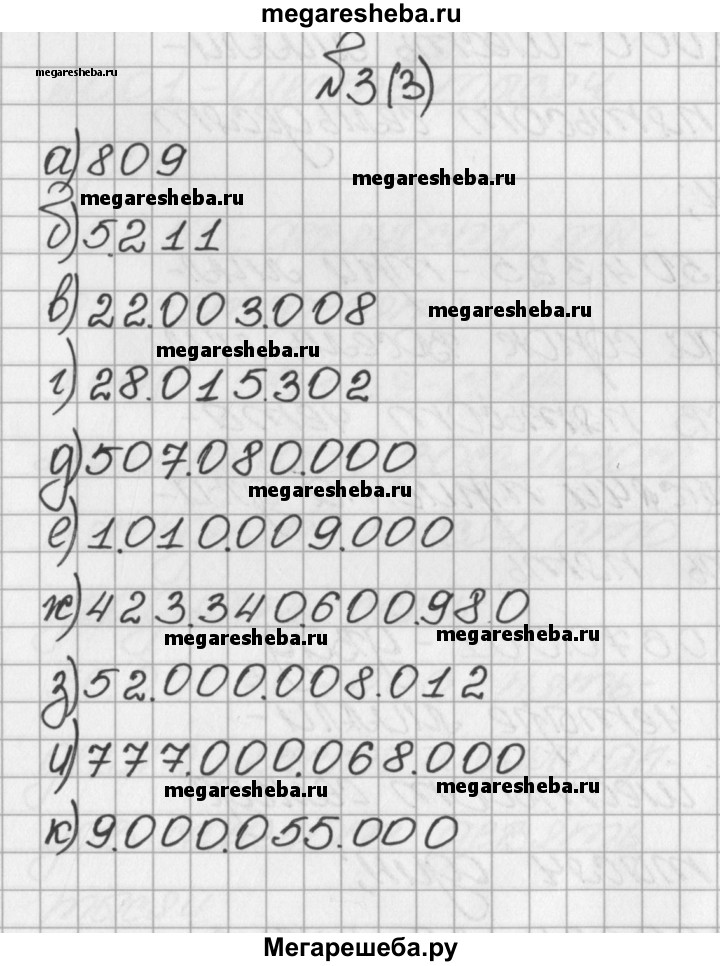 megaresheba.ru
megaresheba.ru
№3(3)
а) 809
megaresheba.ru
megaresheba.ru
б) 5.211
в) 22.003.008
megaresheba.ru
megaresheba.ru
г) 28.015.302
д) 507.080.000
megaresheba.ru
е) 1.010.009.000
ж) 423.340.600.980
megaresheba.ru
megaresheba.ru
з) 52.000.008.012
и) 777.000.068.000
megaresheba.ru
megaresheba.ru
к) 9.000.055.000
Мегарешеба.ру